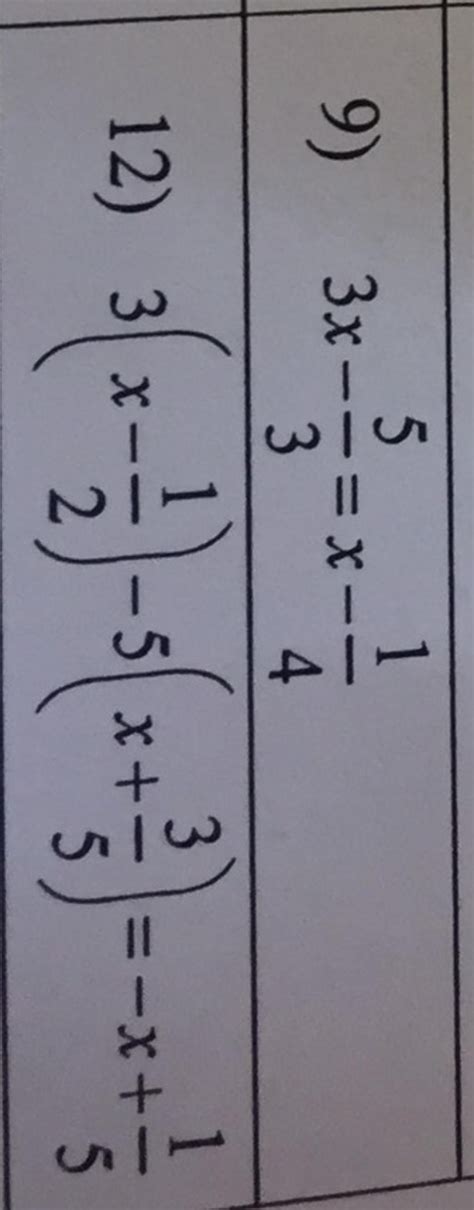 9) 3x - 5/3 = x - 1/4
12) 3(x - 1/2) - 5(x + 3/5) = -x + 1/5